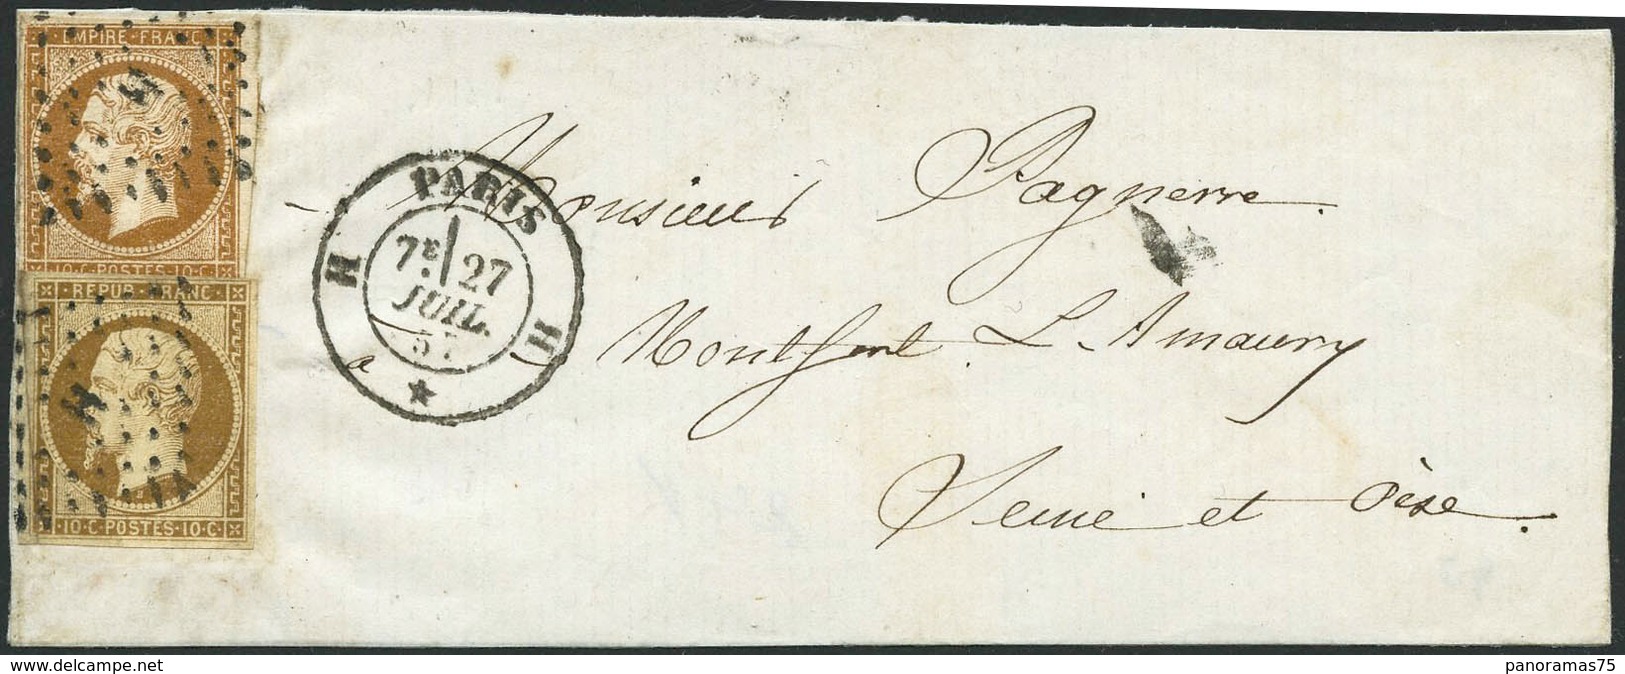 EMPIRE FRANC
10·C·POSTES·10·C·
REPUB·FRANC·
10·C·POSTES·10·C·
PARIS
7E 27
JUIL.
57
H H
Monsieur Pagnerre.
a Montfort L'Amaury
Seine et Oise.
delcampe.net
panoramas75